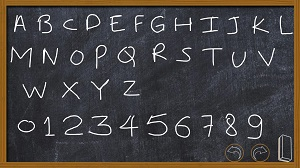 A B C D E F G H I J K L
M N O P Q R S T U V
W X Y Z
0 1 2 3 4 5 6 7 8 9